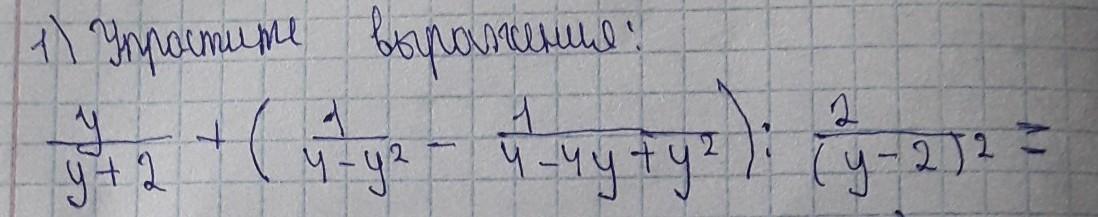 1) Упростите выражение:
y/(y+2) + (1/(4-y²) - 1/(4-4y+y²)) : 2/(y-2)² =